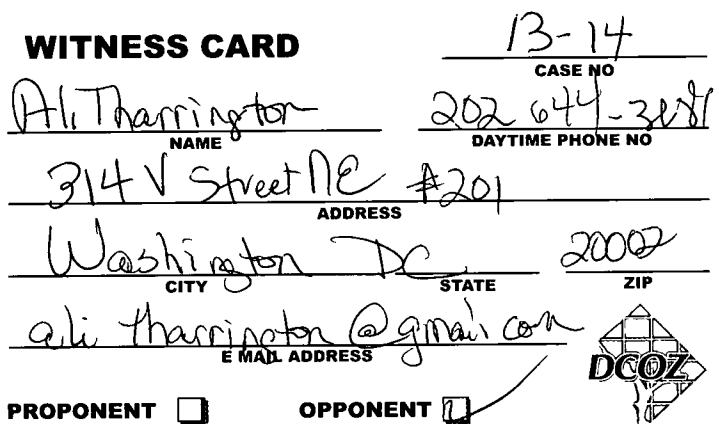 WITNESS CARD
13-14
CASE NO
Ali Tharrington
NAME
202 644-
DAYTIME PHONE NO
314 V Street NE #201
ADDRESS
Washington DC 20002
CITY STATE ZIP
ali tharrington @ gmail com
E MAIL ADDRESS
DCOZ
PROPONENT OPPONENT